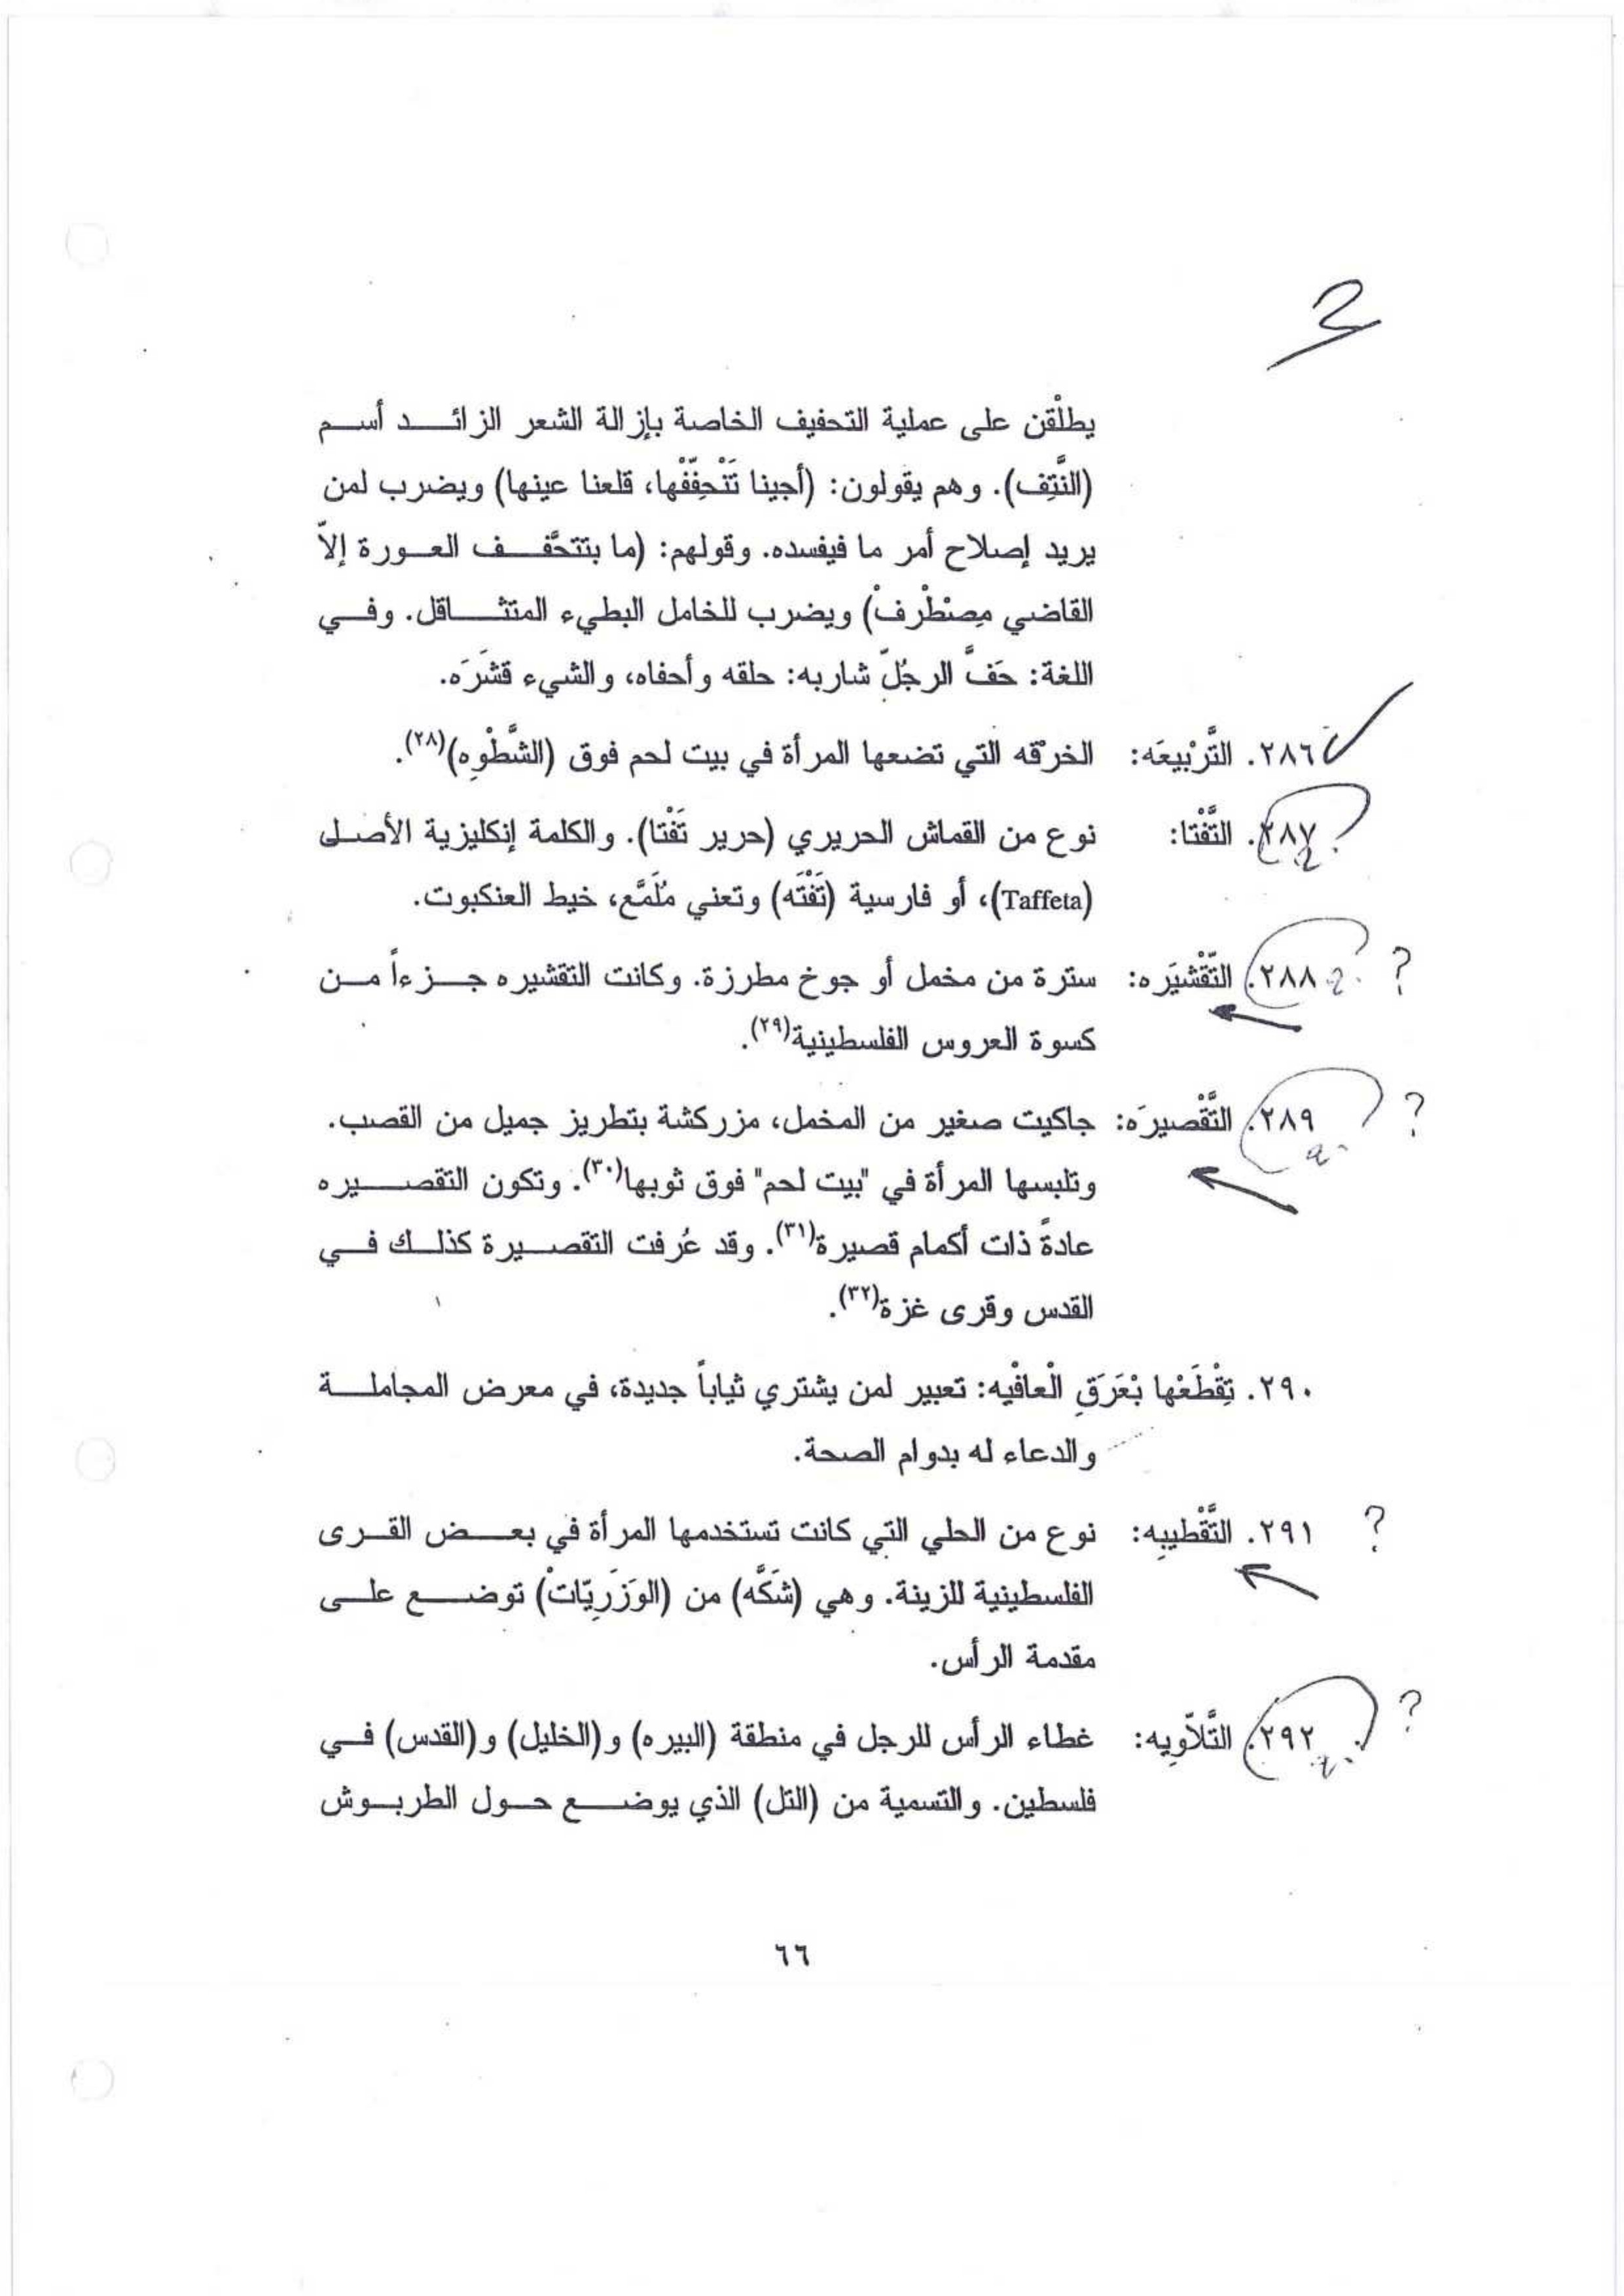 يطلْقن على عملية التحفيف الخاصة بإزالة الشعر الزائد أسم
(النَّتِف). وهم يقولون: (أجينا تَنْحِفِّفْها، قلعنا عينها) ويضرب لمن
يريد إصلاح أمر ما فيفسده. وقولهم: (ما بتتحَّفف العورة إلاّ
القاضي مِصنْطْرفْ) ويضرب للخامل البطيء المتثاقل. وفي
اللغة: حَفَّ الرجُلّ شاربه: حلقه وأحفاه، والشيء قشَرَه.
٢٨٦. التَّرْبيعَه: الخرْقه التي تضعها المرأة في بيت لحم فوق (الشَّطْوِه)(٢٨).
٢٨٧. التَّفْتا: نوع من القماش الحريري (حرير تَفْتا). والكلمة إنكليزية الأصل
(Taffeta)، أو فارسية (تَفْتَه) وتعني مُلَمَّع، خيط العنكبوت.
? ٢٨٨. التَّقْشيَره: سترة من مخمل أو جوخ مطرزة. وكانت التقشيره جزءاً من
كسوة العروس الفلسطينية(٢٩).
? ٢٨٩. التَّقْصيرَه: جاكيت صغير من المخمل، مزركشة بتطريز جميل من القصب.
وتلبسها المرأة في "بيت لحم" فوق ثوبها(٣٠). وتكون التقصيره
عادةً ذات أكمام قصيرة(٣١). وقد عُرفت التقصيرة كذلك في
القدس وقرى غزة(٣٢).
٢٩٠. تِقْطَعْها بْعَرَقِ الْعافْيه: تعبير لمن يشتري ثياباً جديدة، في معرض المجاملة
والدعاء له بدوام الصحة.
? ٢٩١. التَّقْطيبِه: نوع من الحلي التي كانت تستخدمها المرأة في بعض القرى
الفلسطينية للزينة. وهي (شَكَّه) من (الوَزَرِيّاتْ) توضع على
مقدمة الرأس.
? ٢٩٢. التَّلاّوِيه: غطاء الرأس للرجل في منطقة (البيره) و(الخليل) و(القدس) في
فلسطين. والتسمية من (التل) الذي يوضع حول الطربوش
٦٦